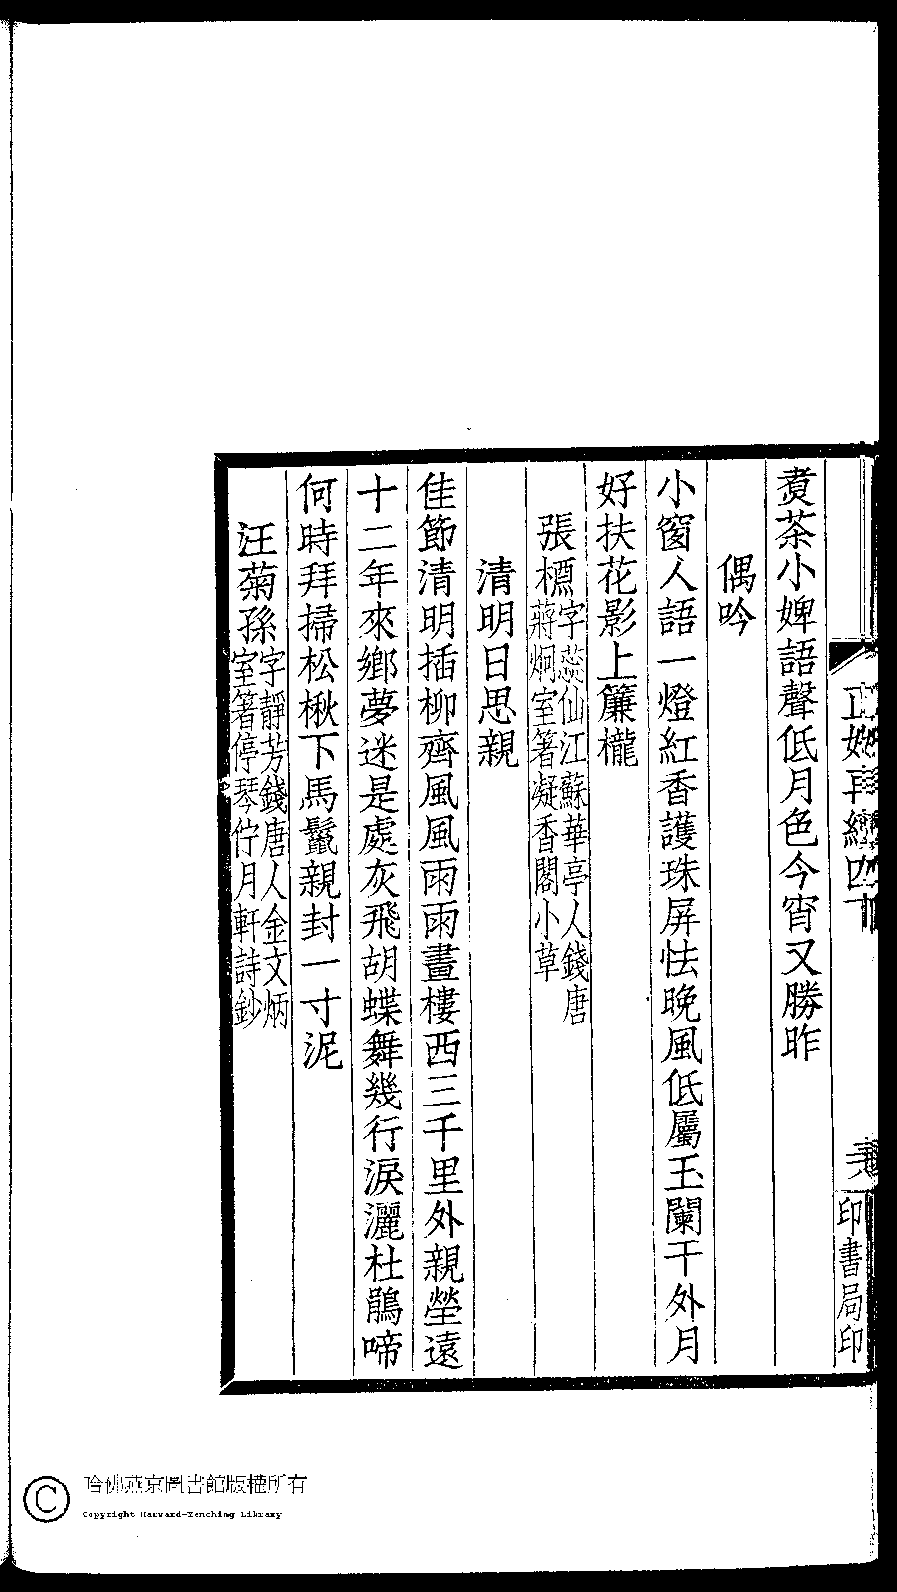 煑茶小婢語聲低月色今宵又勝昨
偶吟
小窗人語一燈紅香護珠屏怯晚風低屬玉闌干外月
好扶花影上簾櫳
張標字蕊仙江蘇華亭人錢唐
蔣炯室箸凝香閣小草
清明日思親
佳節清明插柳齊風風雨雨畫樓西三千里外親塋遠
十二年來鄉夢迷是處灰飛胡蝶舞幾行淚灑杜鵑啼
何時拜掃松楸下馬鬣親封一寸泥
汪菊孫字靜芳錢唐人金文炳
室箸停琴佇月軒詩鈔
印書局印
哈佛燕京圖書館版權所有
Copyright Harvard-Yenching Library